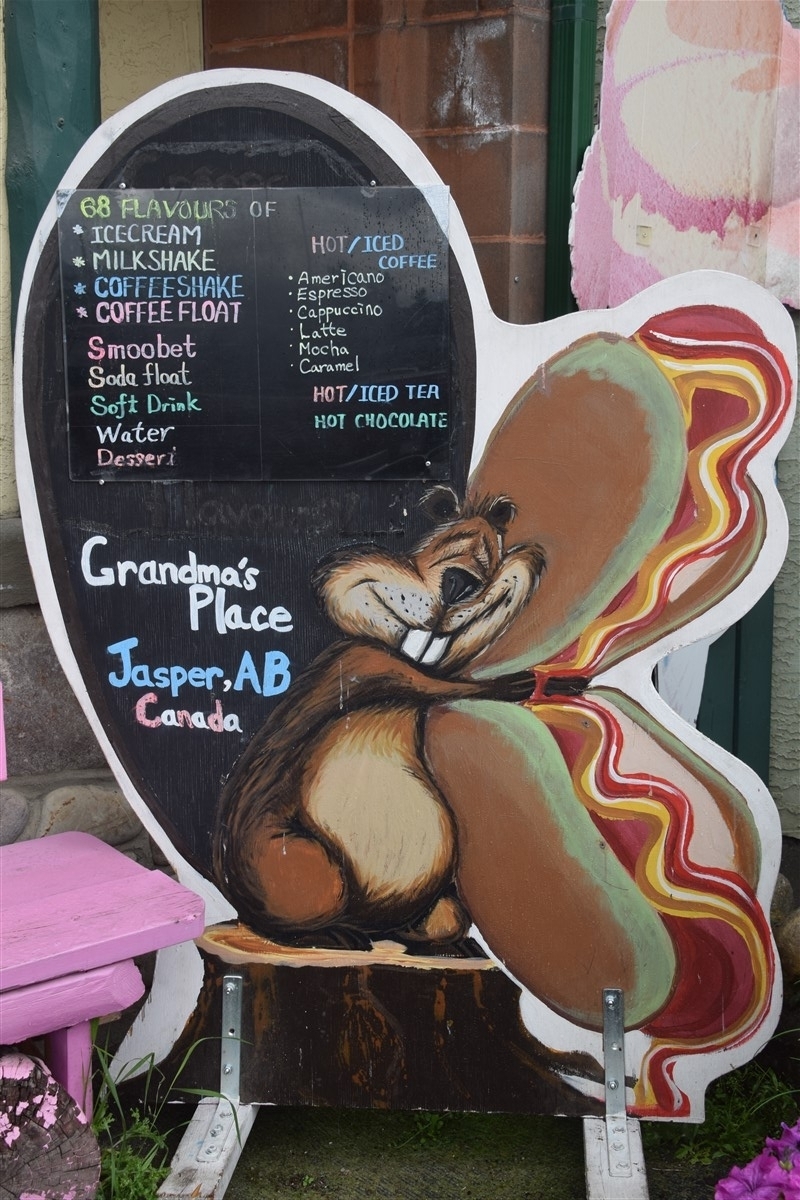 68 FLAVOURS OF
* ICECREAM
* MILKSHAKE
* COFFEESHAKE
* COFFEE FLOAT
Smoobet
Soda float
Soft Drink
Water
Dessert
HOT/ICED
COFFEE
· Americano
· Espresso
· Cappuccino
· Latte
· Mocha
· Caramel
HOT/ICED TEA
HOT CHOCOLATE
Grandma's
Place
Jasper, AB
Canada